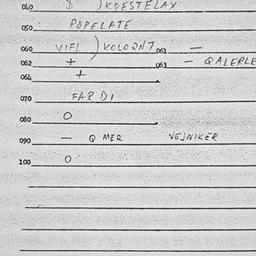 040 D )KSESTELAX
050 POPELATE
060 VIFL )KOLOZNT 061 —
062 + 063 — QALERLE
064 +
070 FABDI
080 O
090 — Q MER VEJNIKER
100 O